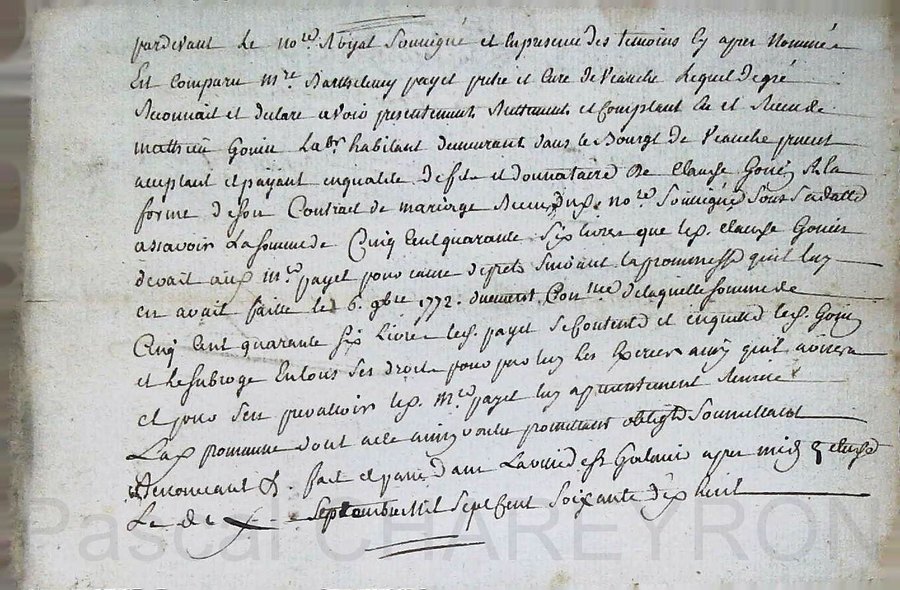 pardevant le no.re Royal Soussigné et en presence des témoins cy apres Nommés
Est comparu m.re Barthelemy payet prêtre et Curé de Veauche Lequel de gré
Reconnait et declare avoir presentement Reellement et Comptant Eu et Receu de
mathieu Gonin Lab.r habitant demeurant dans le Bourg de Veauche present
acceptant et payant en qualité de fils et donnataire de Clause Gonin a la
forme de son Contract de mariage Receu dud. no.re Soussigné Sous Sa datte
assavoir La Somme de Cinq Cent quarante Six livres que led. Clause Gonin
devait aud. m.re payet pour cause de prets Suivant la promesse qu'il luy
en avait faitte le 6. 9bre 1772. de laquelle Somme de
Cinq Cent quarante Six Livres led. payet Se Contente et en quitte led. Gonin
et le Subroge En tous Ses droits pour par luy Les Exercer ainsy qu'il avisera
Et pour S'en prevalloir led. M.re payet luy a presentement Remis
Lad. promesse dont acte ainsy voulu promettant obligeant Soumettant
Renonceant &. fait et passé dans La ville de St Galmier apres midy
Le dix Septembre Mil Sept Cent Soixante dix huit
Pascal CHAREYRON